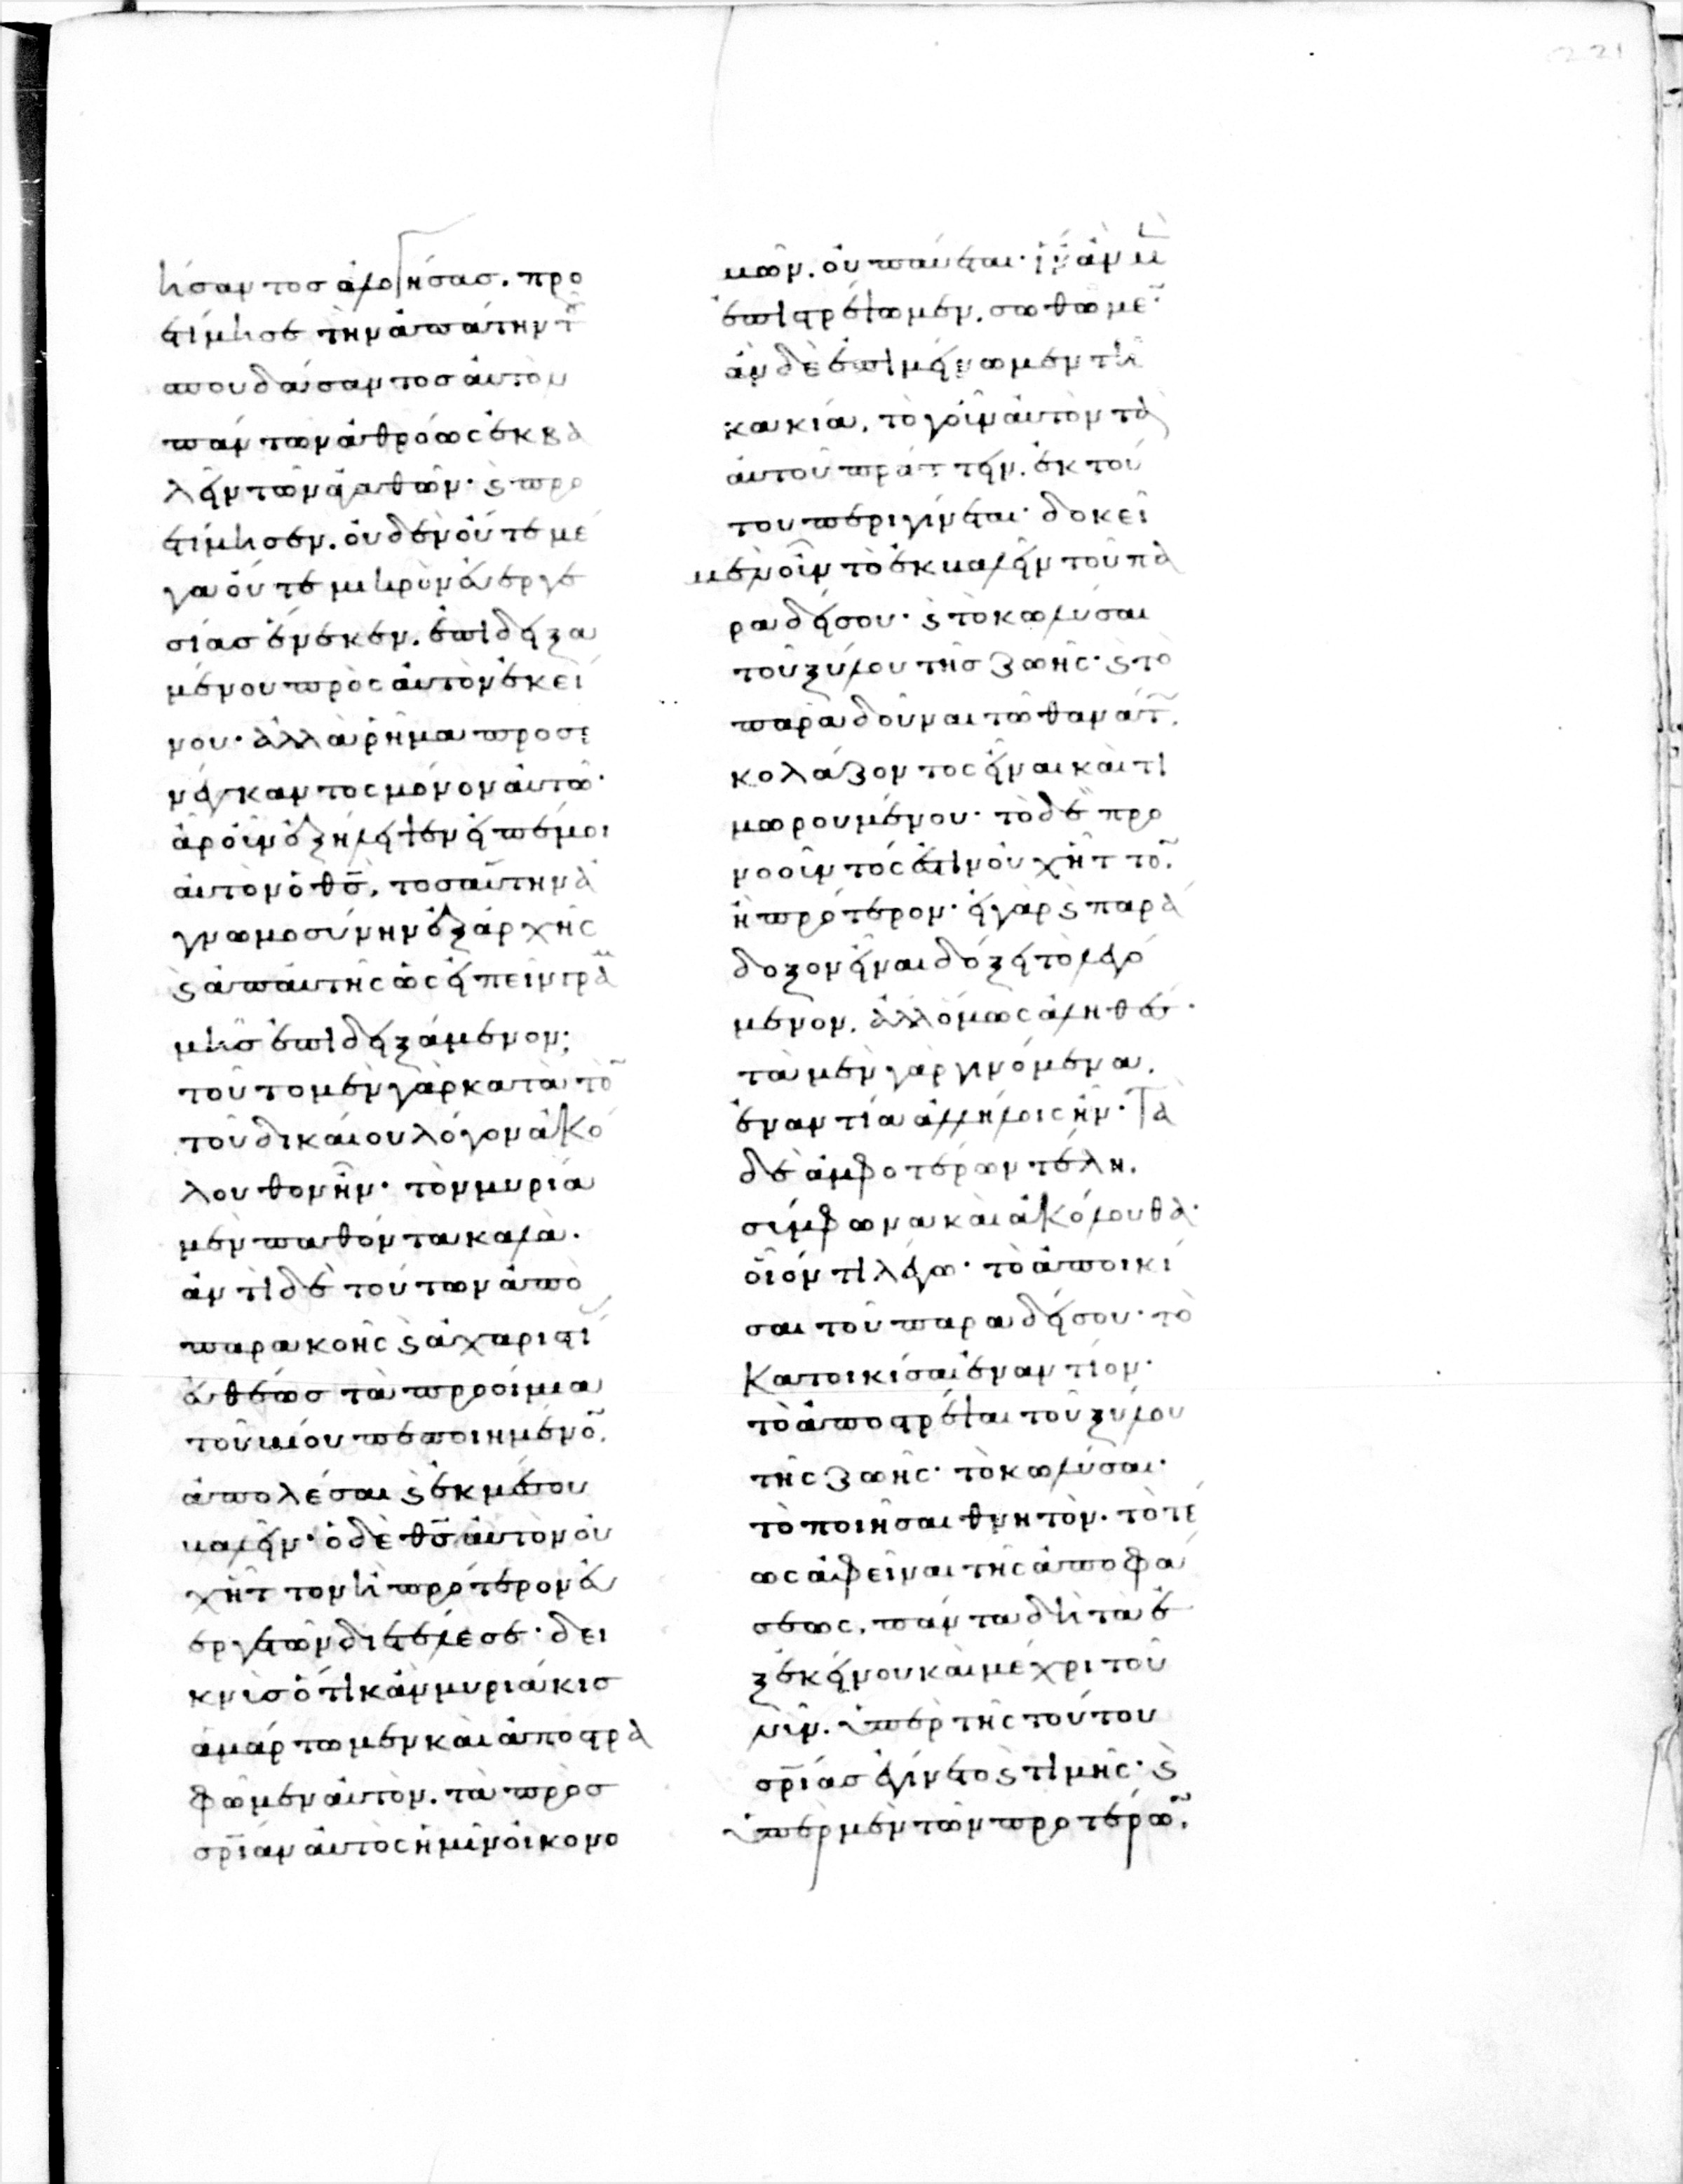 ήσαντος ἀλογήσας. προ
ετίμησε τὴν ἀπάτην τοῦ
σπουδάσαντος αὐτὸν
πάντων ἀθρόως ἐκβα
λεῖν τῶν ἀγαθῶν· καὶ προ
ετίμησεν. οὐδὲν οὔτε μέ
γα οὔτε μικρὸν εὐεργε
σίας ἕνεκεν. ἐπιδειξα
μένου πρὸς αὐτὸν ἐκεί
νου· ἀλλὰ ῥήματα προσε
νεγκαντος μόνον αὐτῶ·
ἆρ οὖν ἐξήλειψεν εἰπέ μοι
αὐτὸν ὁ θς̄, τοσαύτην ἀ
γνωμοσύνην ἐξ ἀρχῆς
καὶ ἀπ αὐτῆς ὡς εἰπεῖν γραμ
μῆς ἐπιδειξάμενον;
τοῦτο μὲν γὰρ κατὰ τὸν
τοῦ δικαίου λόγον ἀκό
λουθον ἦν· τὸν μυρία
μὲν παθόντα καλὰ.
ἀντὶ δὲ τούτων ἀπὸ
παρακοῆς καὶ ἀχαριστί
ας εὐθέως τὰ προοίμια
τοῦ βίου πεποιημένον.
ἀπολέσαι καὶ ἐκ μέσου
βαλεῖν· ὁ δὲ θς̄ αὐτὸν οὐ
χ ἧττον ἢ πρότερον εὐ
εργετῶν διετέλεσε· δει
κνὺς ὅτι κἂν μυριάκις
ἁμάρτωμεν καὶ ἀποστρα
φῶμεν αὐτὸν. τὰ πρὸς
σρ̄ίαν αὐτὸς ἡμῖν οἰκονο
μῶν. οὐ παύεται· ἵν ἂν μὲν
ἐπιστρέψωμεν. σωθῶμεν·
ἂν δὲ ἐπιμένωμεν τῆ
κακία, τὸ γοῦν αὐτὸν τὰ
αὐτοῦ πράττειν. ἐκ τού
του περιγίνεται· δοκεῖ
μὲν οὖν τὸ ἐκβαλεῖν τοῦ πα
ραδείσου· καὶ τὸ κωλύσαι
τοῦ ξύλου τῆς ζωῆς· καὶ τὸ
παραδοῦναι τῶ θανάτω.
κολάζοντος εἶναι καὶ τι
μωρουμένου· τὸ δὲ προ
νοοῦντός ἐστιν οὐχ ἧττον.
ἢ πρότερον· εἰ γὰρ καὶ παρά
δοξον εἶναι δόξει τὸ λεγό
μενον. ἀλλ ὅμως ἀληθές·
τὰ μὲν γὰρ γινόμενα.
ἐναντία ἀλλήλοις ἦν· Τὰ
δὲ ἀμφοτέρων τέλη.
σύμφωνα καὶ ἀκόλουθα·
οἷόν τι λέγω· τὸ ἀποικί
σαι τοῦ παραδείσου· τὸ
κατοικίσαι ἐναντίον·
τὸ ἀποστρέψαι τοῦ ξύλου
τῆς ζωῆς· τὸ κωλῦσαι·
τὸ ποιῆσαι θνητὸν. τὸ τέ
ως ἀφεῖναι τῆς ἀποφά
σεως. πάντα δὴ τὰ ἐ
ξ ἐκείνου καὶ μέχρι τοῦ
νῦν. ὑπὲρ τῆς τούτου
σρ̄ίας ἐγίνετο καὶ τιμῆς· καὶ
ὑπὲρ μὲν τῶν προτέρων.